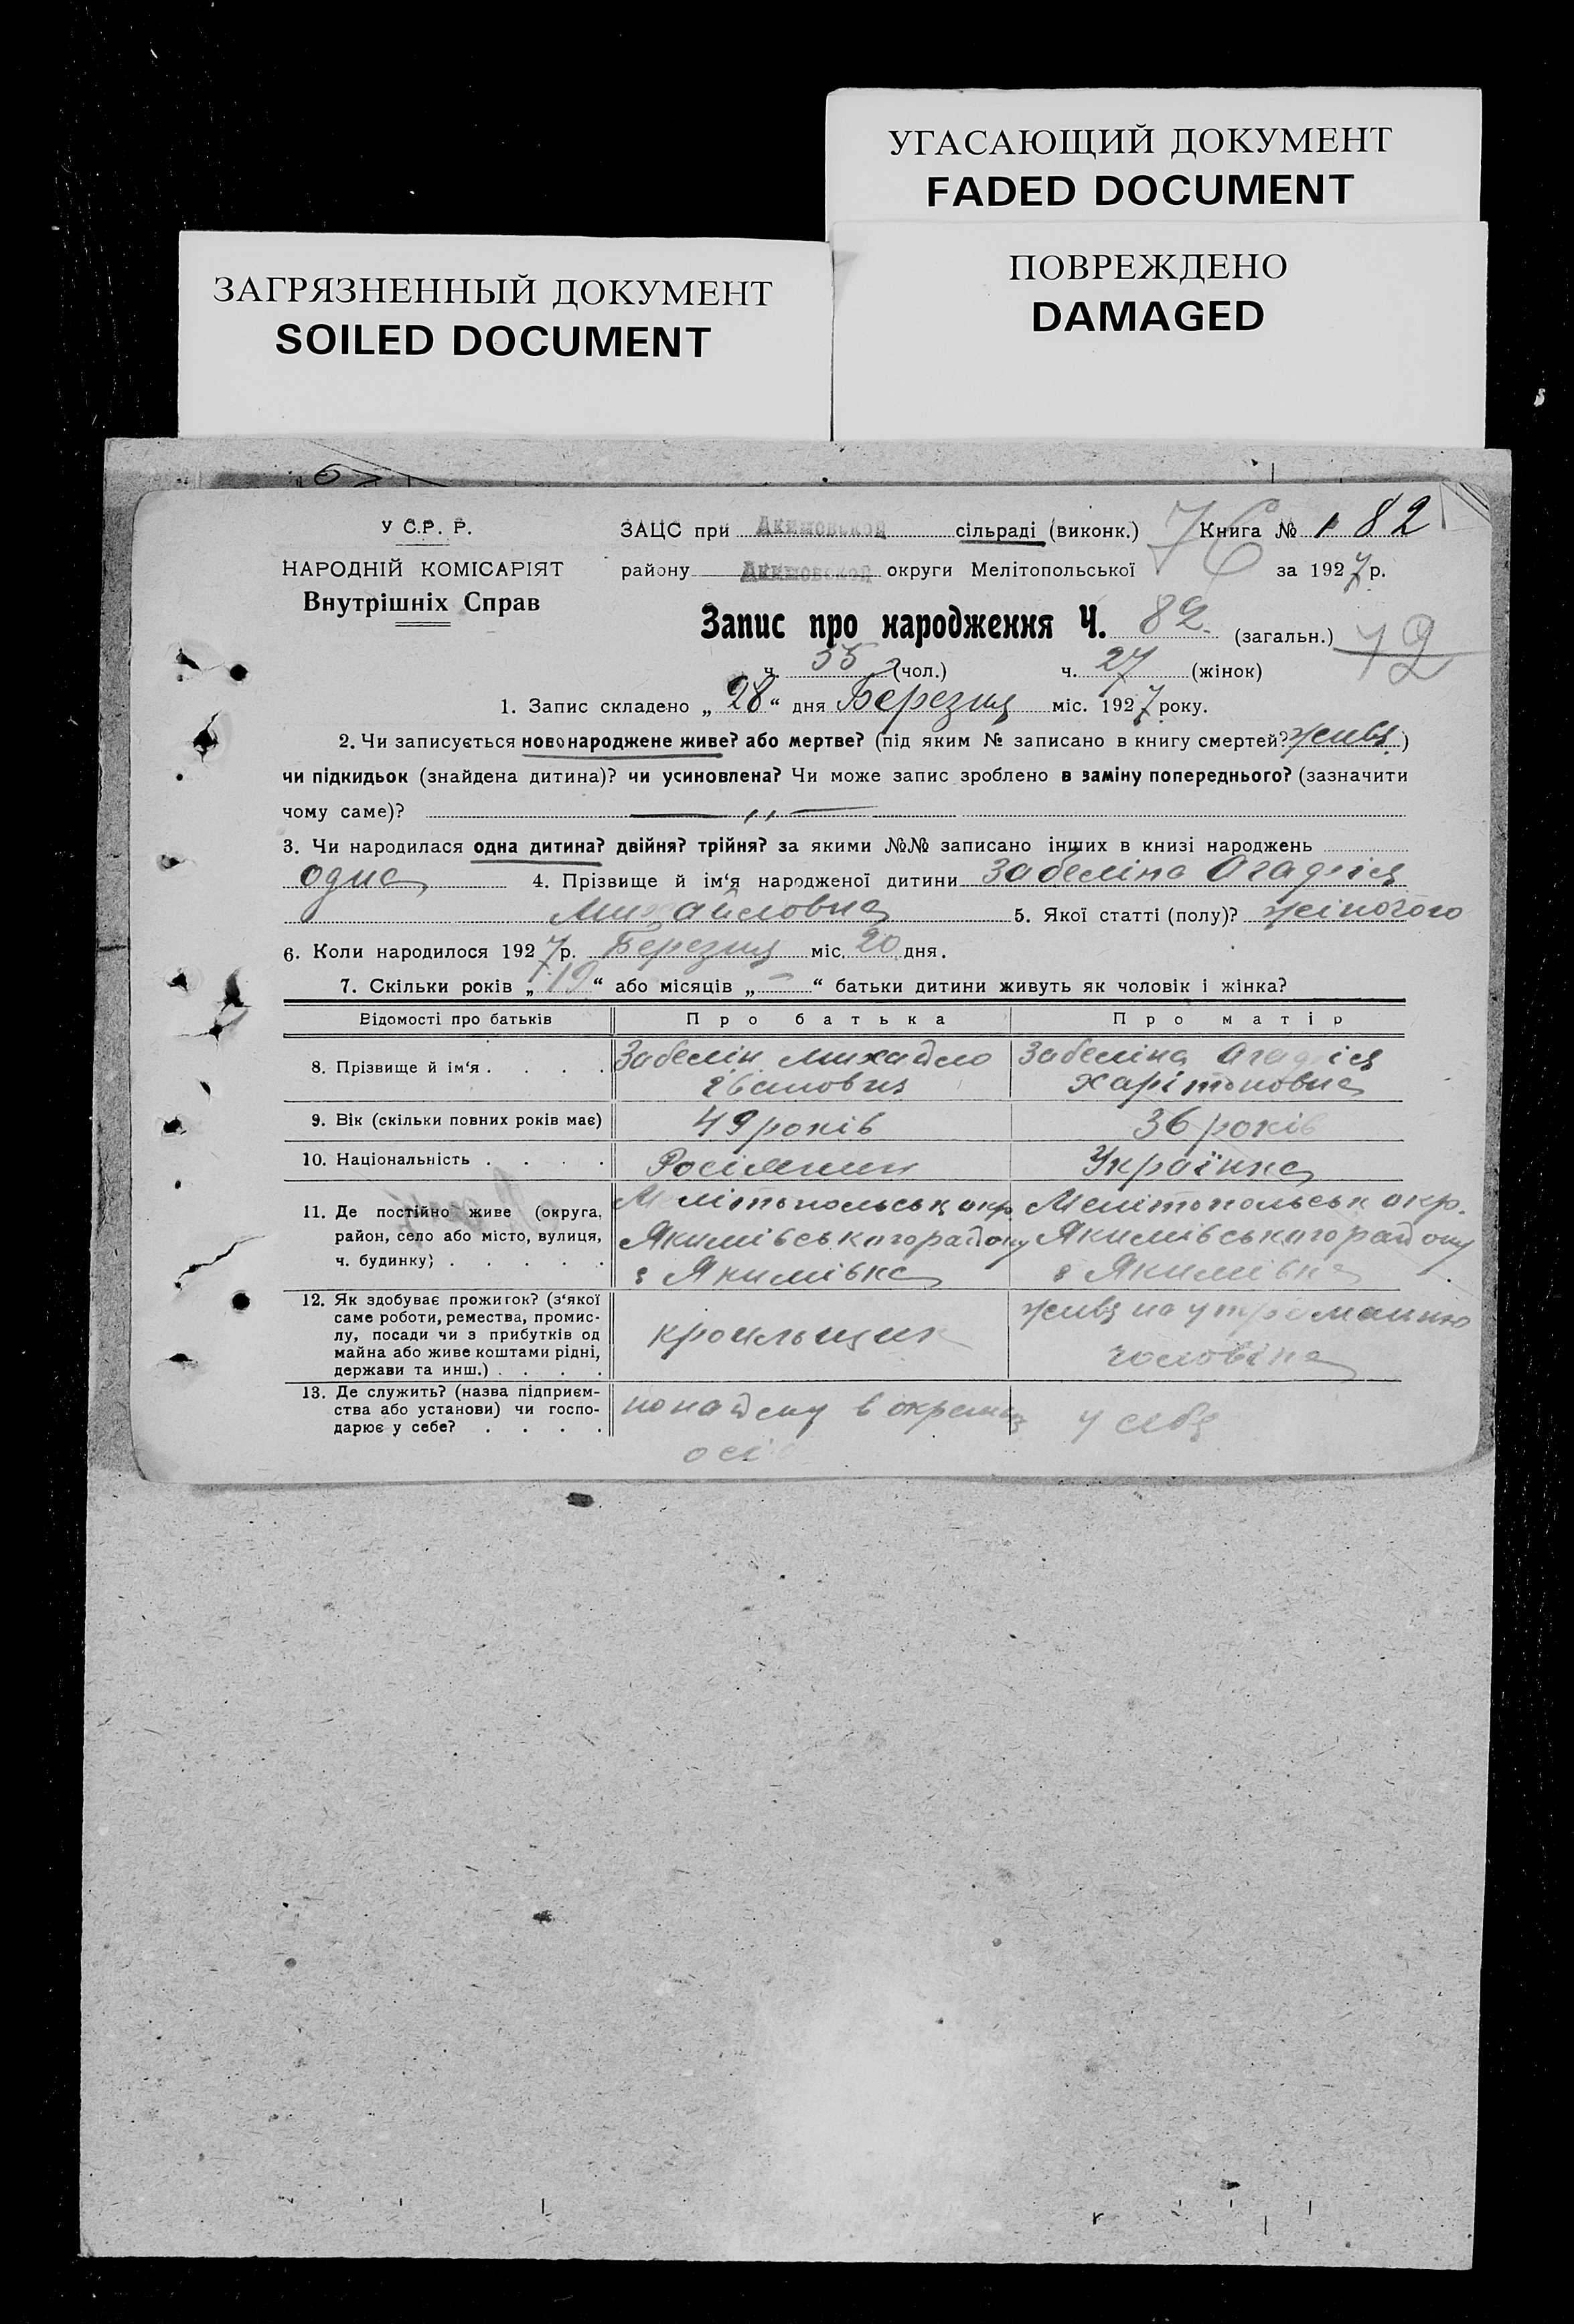 УГАСАЮЩИЙ ДОКУМЕНТ
FADED DOCUMENT
ПОВРЕЖДЕНО
DAMAGED
ЗАГРЯЗНЕННЫЙ ДОКУМЕНТ
SOILED DOCUMENT
У С.Р. Р.
НАРОДНІЙ КОМІСАРІЯТ
Внутрішніх Справ
ЗАЦС при Акимовской сільраді (виконк.) 76 Книга № 1 82
району Акимовской округи Мелітопольської за 1927 р.
Запис про народження Ч. 82 (загальн.) 72
ч. 55 (чол.) ч. 27 (жінок)
1. Запис складено „28“ дня Березня міс. 1927 року.
2. Чи записується новонароджене живе? або мертве? (під яким № записано в книгу смертей? живе)
чи підкидьок (знайдена дитина)? чи усиновлена? Чи може запис зроблено в заміну попереднього? (зазначити
чому саме)? — „ —
3. Чи народилася одна дитина? двійня? трійня? за якими №№ записано інших в книзі народжень
одна 4. Прізвище й ім‘я народженої дитини Забеліна Агафія
Михайловна 5. Якої статті (полу)? жіночого
6. Коли народилося 1927 р. Березня міс. 20 дня.
7. Скільки років „19“ або місяців „—“ батьки дитини живуть як чоловік і жінка?
Відомості про батьків Про батька Про матір
8. Прізвище й ім‘я . . . . Забелін Михайло Забеліна Агафія
Іванович Харітоновна
9. Вік (скільки повних років має) 49 років 36 років
10. Національність . . . . Росіянин Українка
11. Де постійно живе (округа, Мелітопольськ окр. Мелітопольськ окр.
район, село або місто, вулиця, Якимівського району Якимівського району
ч. будинку) . . . . . с Якимівка с Якимівка
12. Як здобуває прожиток? (з‘якої живе на утриманню
саме роботи, ремества, промис-
лу, посади чи з прибутків од кроильщик
майна або живе коштами рідні, чоловіка
держави та инш.) . . . .
13. Де служить? (назва підприєм-
ства або установи) чи госпо- по найму в окремих у себе
дарює у себе? . . . . осіб